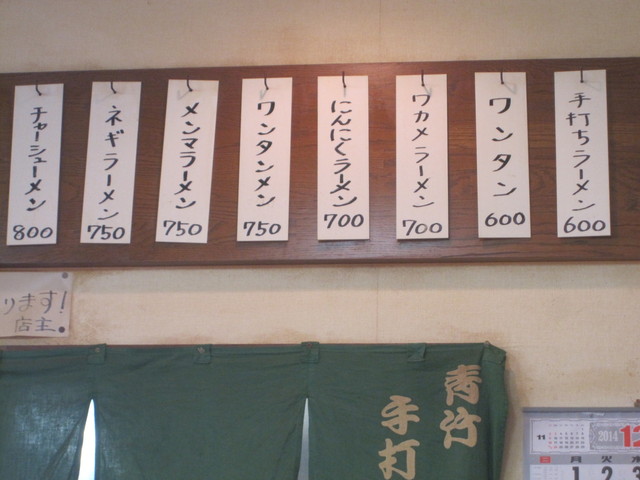 手打ちラーメン
600
ワンタン
600
ワカメラーメン
700
にんにくラーメン
700
ワンタンメン
750
メンマラーメン
750
ネギラーメン
750
チャーシューメン
800
ります!
店主
青竹
手打
11
2014
12
日 月 火 水
1 2 3